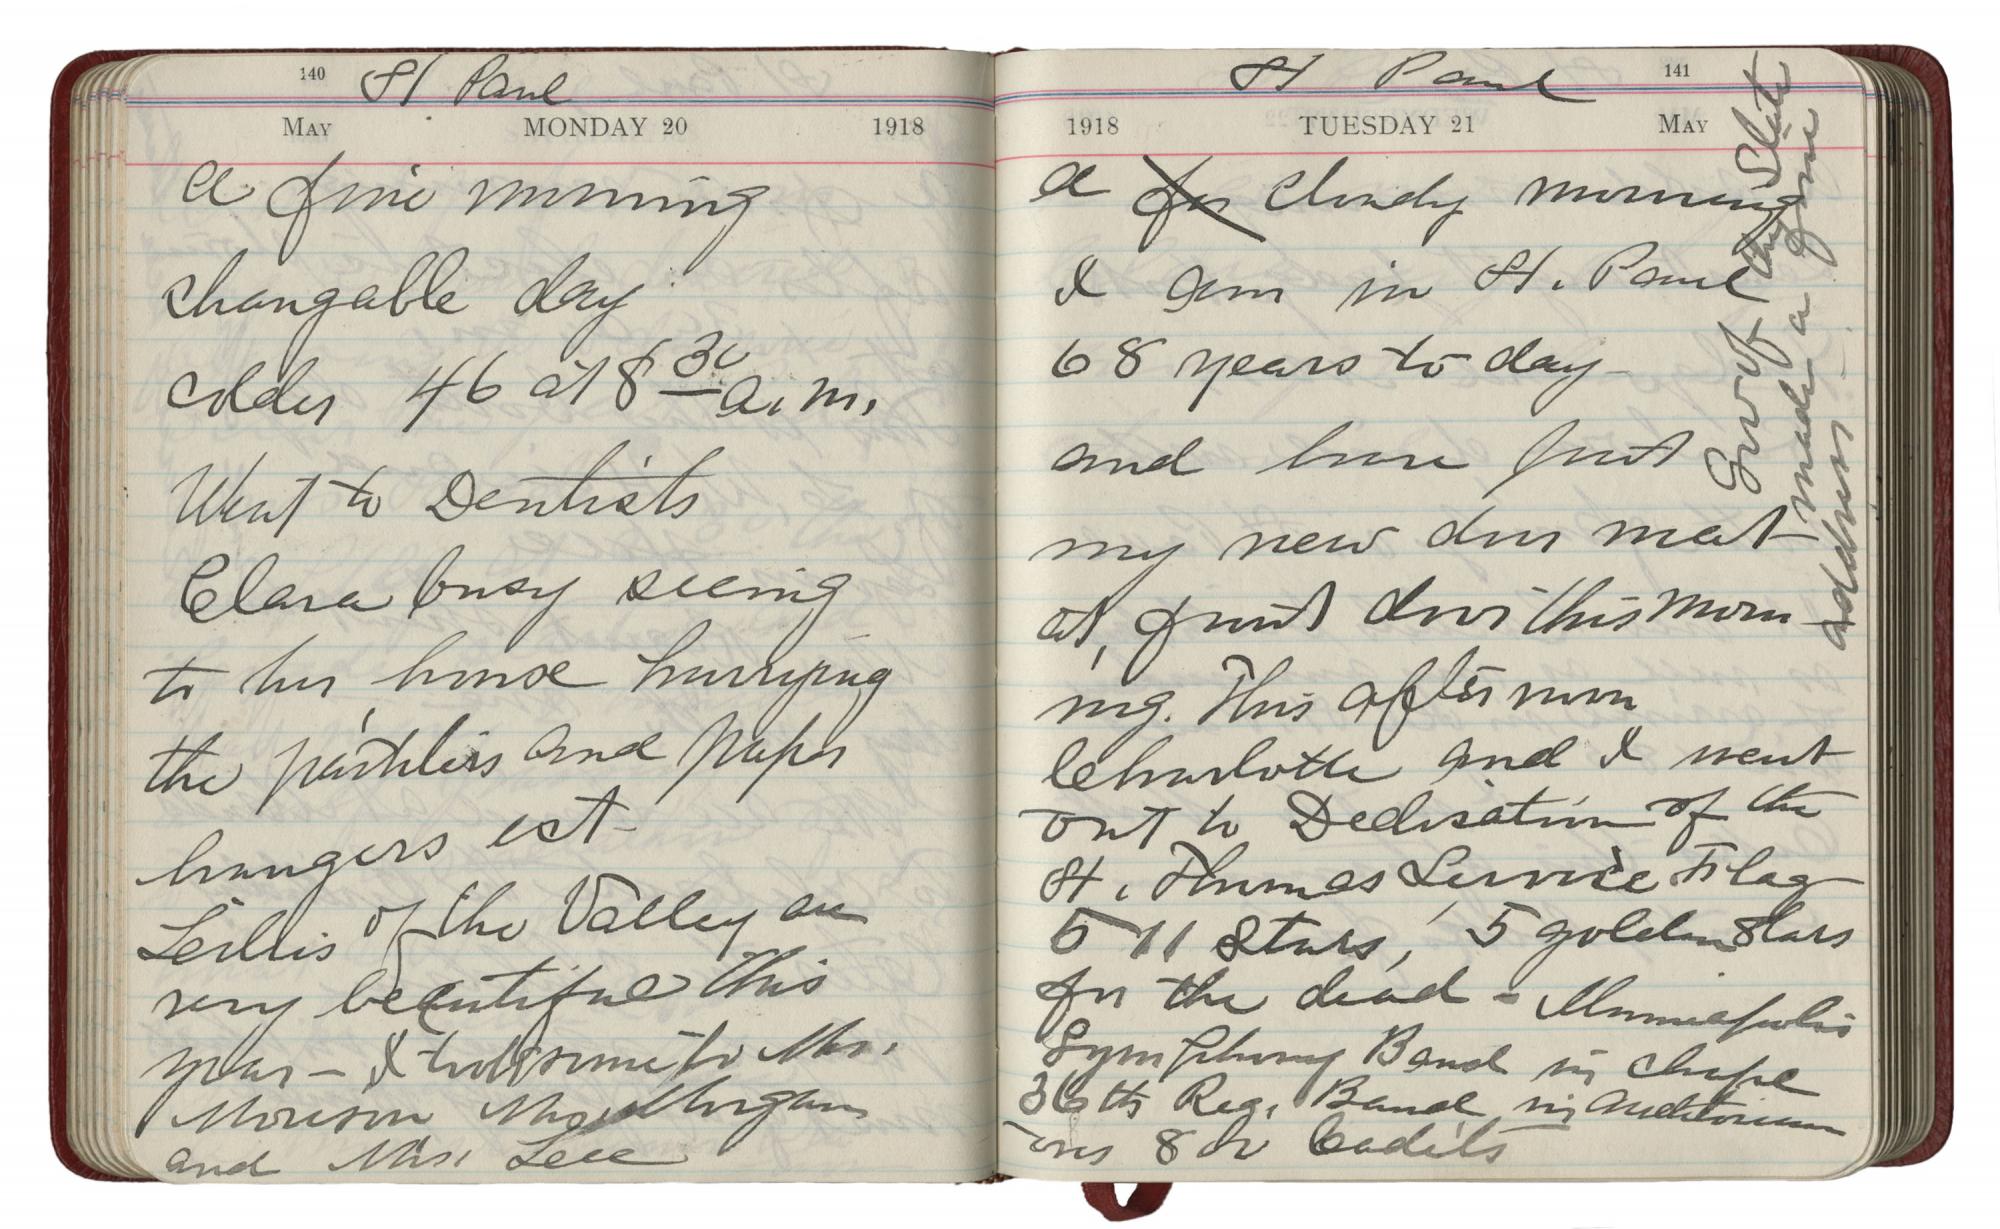 140 St Paul
May MONDAY 20 1918
a fine morning
changable day
colder 46 at 8 30 a.m.
Went to Dentists
Clara busy seeing
to her house hurrying
the and paper
hangers est-
Leilies of the Valley are
very beautiful this
year - I took some to Mrs.
Morison Mrs Morgan
and Mrs. Lee
St Paul 141
1918 TUESDAY 21 May
a for cloudy morning
I am in St. Paul
68 years to day
and have just
my new door meat
at, frunt door this morn
ing. This afternoon
Charlotte and I went
out to Dedication of the
St. Thomas Service Flag
511 Stars, 5 golden Stars
for the dead - Minneapolis
Symphony Band in chaple
36th Reg. Band in auditorium
over 800 Cadits
Gov of this State
made a fine
address